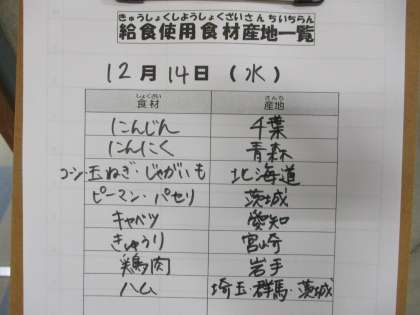 きゅうしょくしようしょくざいさんちいちらん
給食使用食材産地一覧
12月14日(水)
しょくざい さんち
食材 産地
にんじん 千葉
にんにく 青森
コーン・玉ねぎ・じゃがいも 北海道
ピーマン・パセリ 茨城
キャベツ 愛知
きゅうり 宮崎
鶏肉 岩手
ハム 埼玉・群馬・茨城